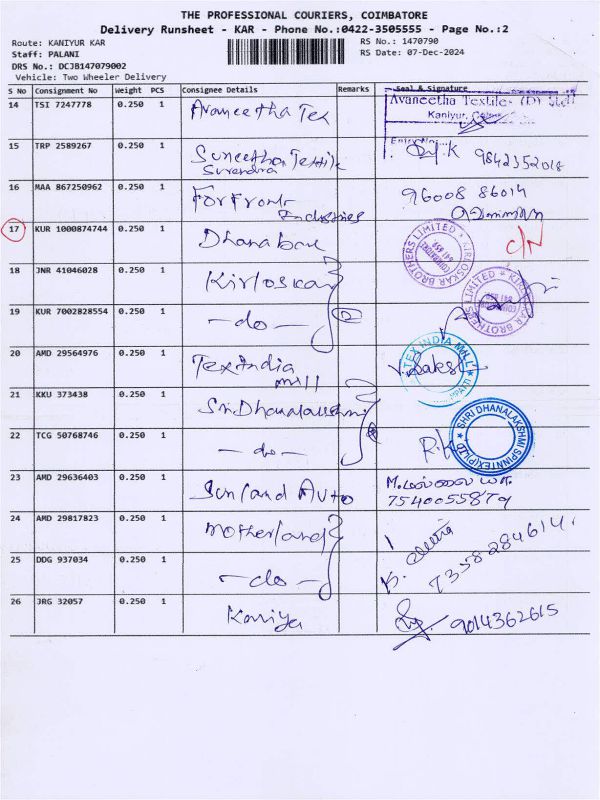 THE PROFESSIONAL COURIERS, COIMBATORE
Delivery Runsheet - KAR - Phone No.:0422-3505555 - Page No.:2
Route: KANIYUR KAR RS No.: 1470790
Staff: PALANI RS Date: 07-Dec-2024
DRS No.: DCJB147079002
Vehicle: Two Wheeler Delivery
S No Consignment No Weight PCS Consignee Details Remarks Seal & Signature
14 TSI 7247778 0.250 1 Avaneetha Tex Avaneetha Textiles
Kaniyur,
15 TRP 2589267 0.250 1 Suneetha Textile
Surendra 9842352018
16 MAA 867250962 0.250 1 ForFront 96008 86014
Industries
17 KUR 1000874744 0.250 1 C/N
KIRLOSKAR BROTHERS LIMITED
COIMBATORE
641 659
18 JNR 41046028 0.250 1 Kirloskar
KIRLOSKAR BROTHERS LIMITED
19 KUR 7002828554 0.250 1 -do- 2
20 AMD 29564976 0.250 1 Tex India
mill
TEX INDIA MILL
21 KKU 373438 0.250 1 Sri Dhanalakshmi
22 TCG 50768746 0.250 1 -do-
SHRI DHANALAKSHMI SPINNTEX(P)LTD
23 AMD 29636403 0.250 1 Sunland Auto
7540055879
24 AMD 29817823 0.250 1 Motherland
25 DDG 937034 0.250 1 -do- 7358284614
26 JRG 32057 0.250 1 Kaniya 9014362615